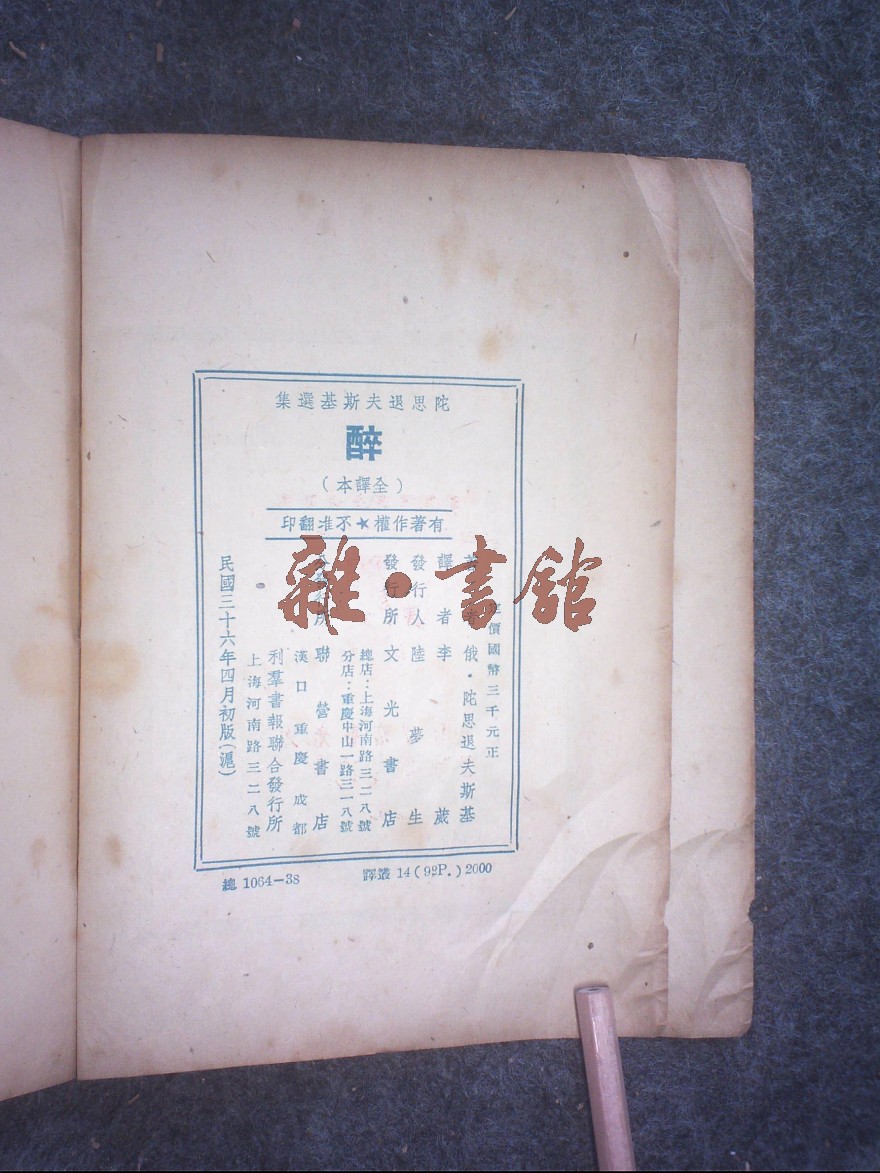 陀思退夫斯基選集
醉
（全譯本）
有著作權★不准翻印
價國幣三千元正
俄·陀思退夫斯基
譯者 李葳
發行人 陸夢生
發行所 文光書店
總店：上海河南路三二八號
分店：重慶中山一路三一八號
聯營書店
漢口 重慶 成都
利羣書報聯合發行所
上海河南路三二八號
民國三十六年四月初版（滬）
總 1064—38
譯叢 14（92P.）2000
雜·書館